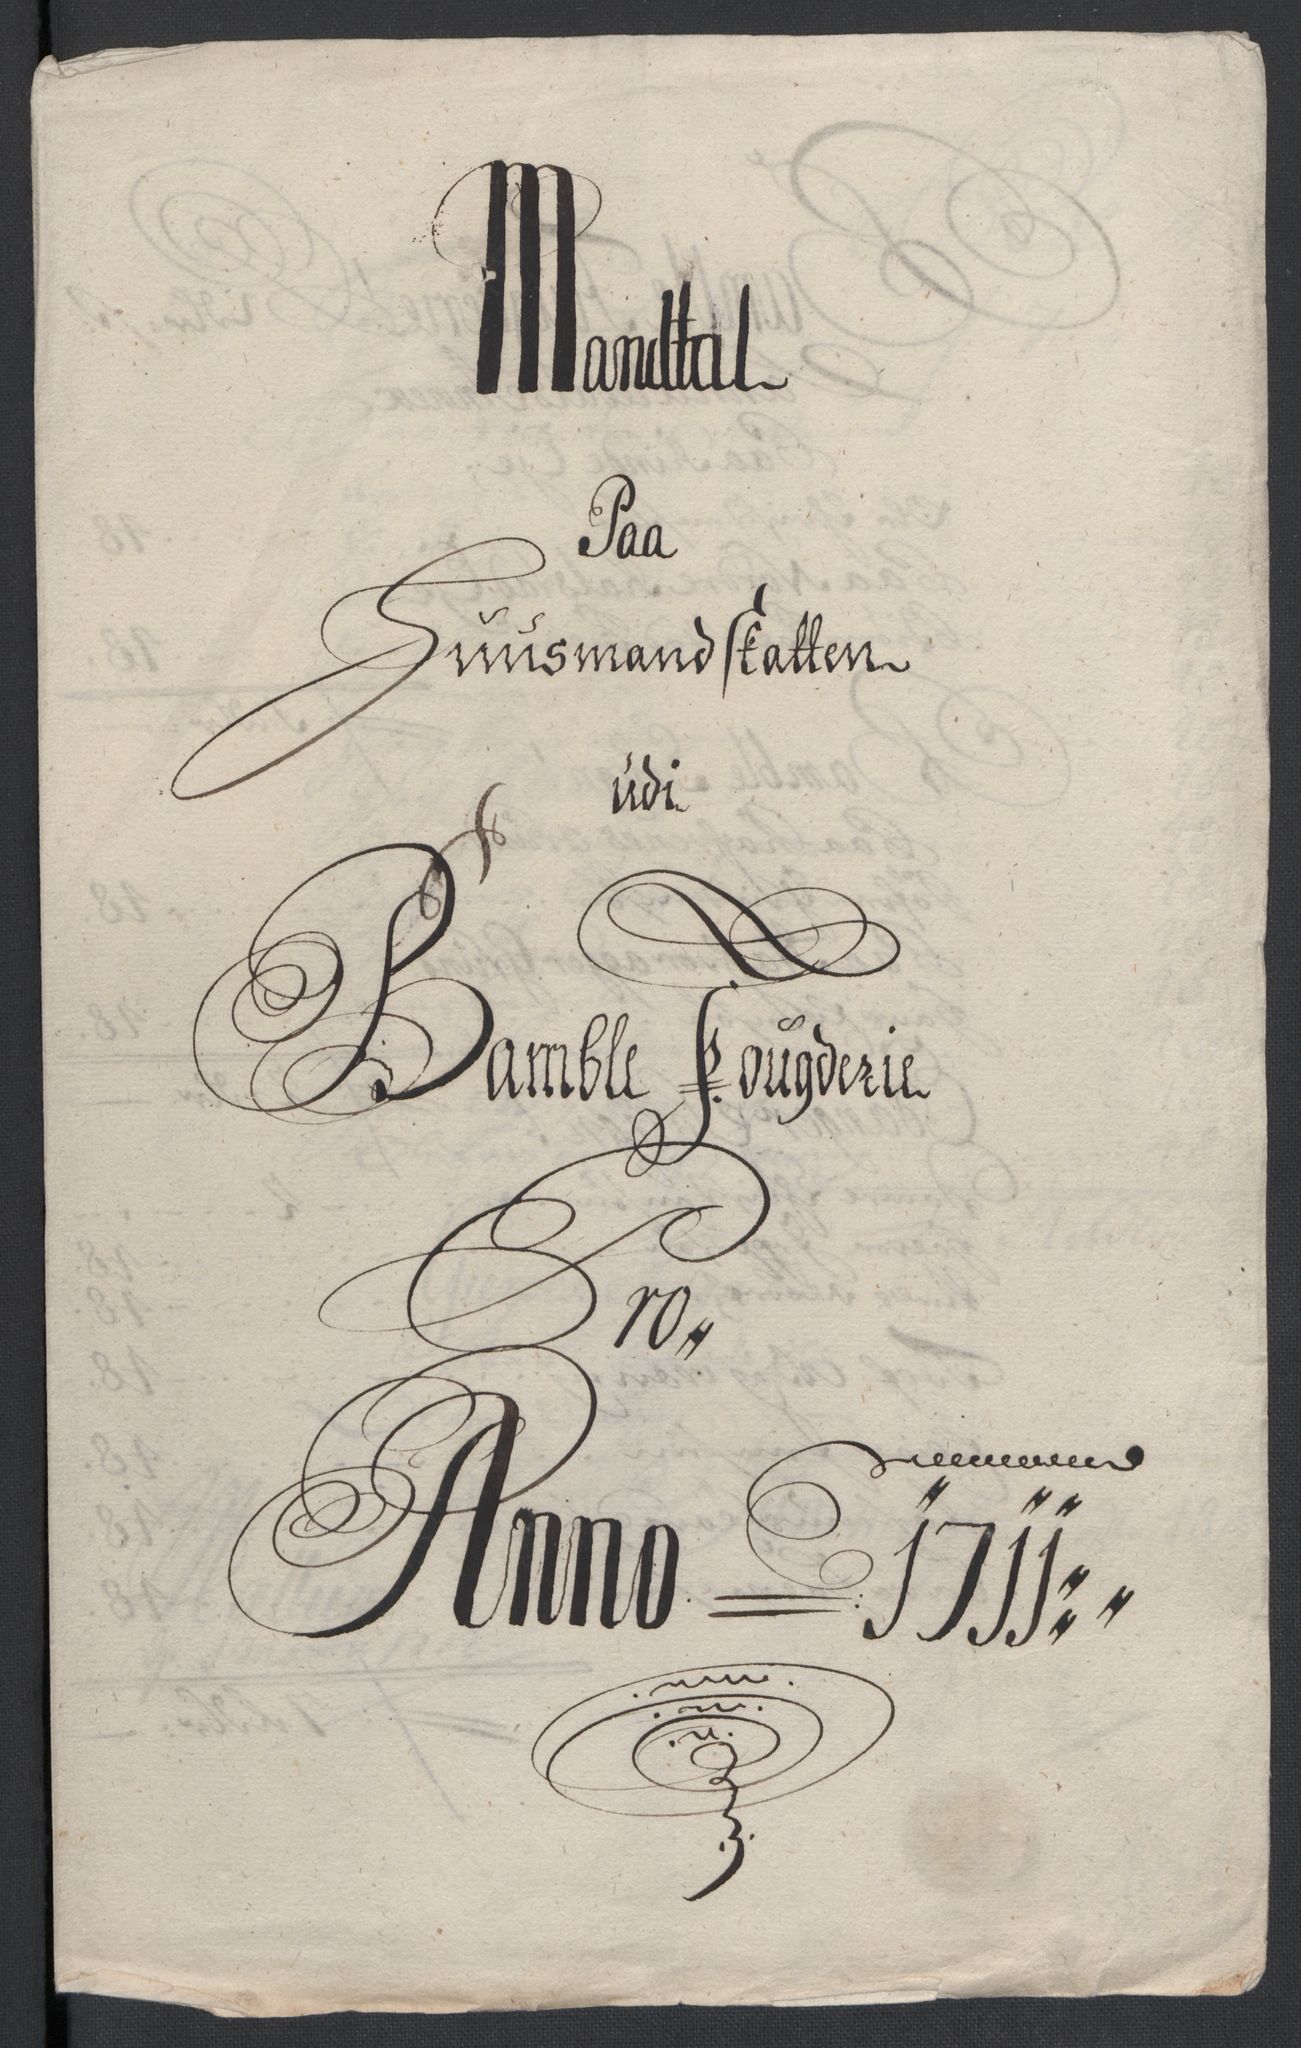 Mandtal
Paa
Huusmandskatten
udi
Bamble Fougderie
Pro
Anno = 1711